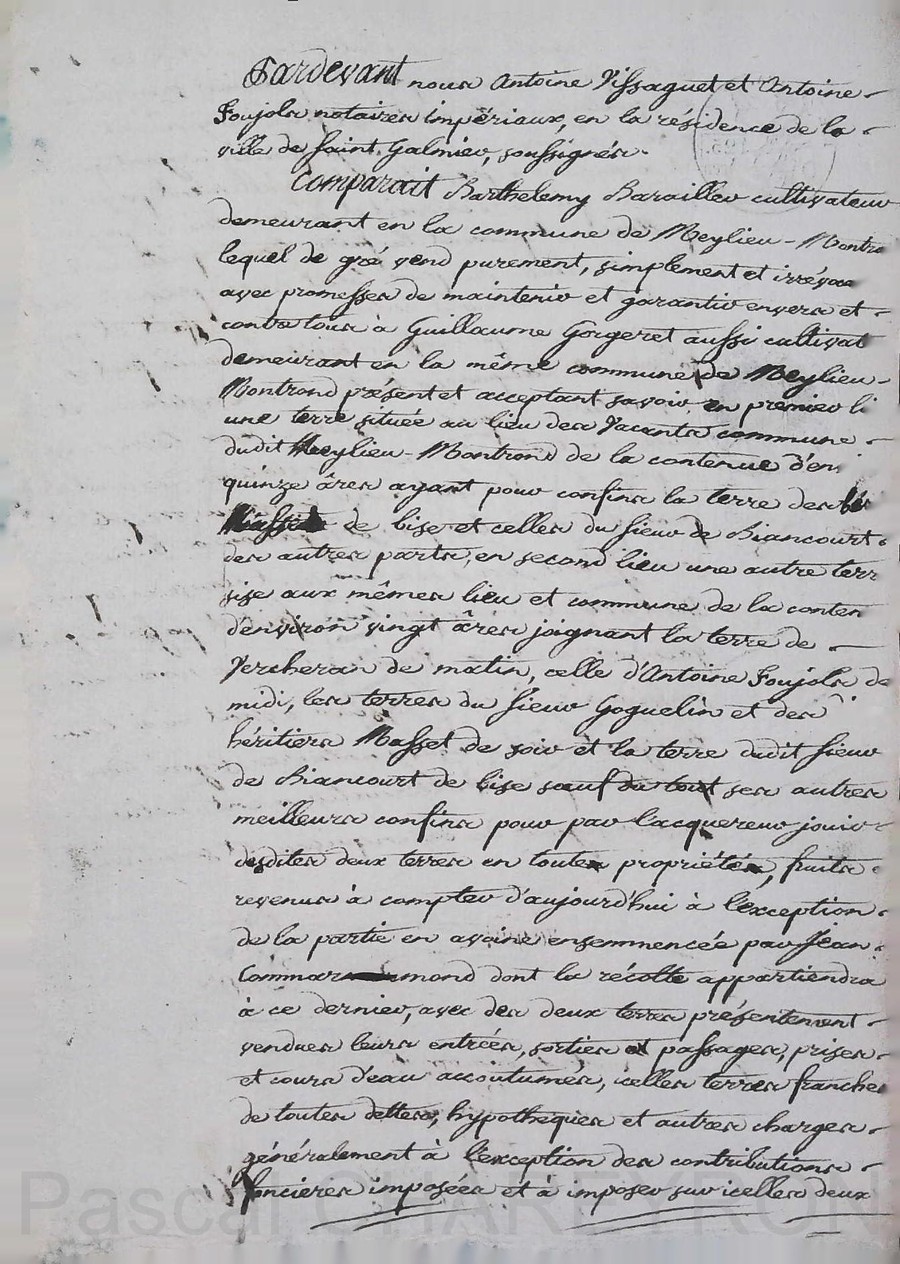 Pardevant nous Antoine Vissaguet et Antoine
Foujols notaires impériaux, en la résidence de la
ville de saint Galmier, soussignés.
Comparait Barthelemy Barailler cultivateur
demeurant en la commune de Meylieu-Montro
lequel de gré vend purement, simplement et irrévoca
avec promesses de maintenir et garantir envers et
contre tous à Guillaume Gorgeret aussi cultivat
demeurant en la même commune de Meylieu-
Montrond présent et acceptant savoir, en premier li
une terre située au lieu des Vacants commune
dudit Meylieu-Montrond de la contenue d'en
quinze âres ayant pour confins la terre des
de bise et celles du sieur de Biancourt
des autres parts, en second lieu une autre terr
sise aux mêmes lieu et commune de la conten
d'environ vingt âres joignant la terre de
Vercheran de matin, celle d'Antoine Foujols de
midi, les terres du sieur Goguelin et des
héritiers Masset de soir et la terre dudit sieur
de Biancourt de bise sauf du tout ses autres
meilleurs confins pour par l'acquereur jouir
desdites deux terres en toutes propriétés, fruits
revenus à compter d'aujourd'hui à l'exception
de la partie en avoine ensemmencée par Jean
Commarmond dont la récolte appartiendra
à ce dernier, avec des deux terres présentement
vendues leurs entrées, sorties et passages, prises
et cours d'eau accoutumés, icelles terres franches
de toutes dettes, hypotheques et autres charges
généralement à l'exception des contributions
foncieres imposées et à imposer sur icelles deux
Pascal CHAREYRON